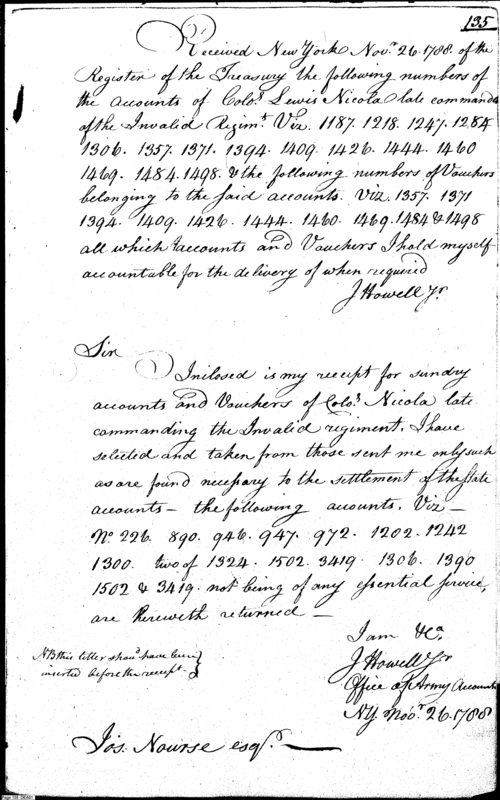 135
Received New York Novr. 26. 1788. of the
Register of the Treasury the following numbers of
the accounts of Colo. Lewis Nicola late command
of the Invalid Regimt. Viz. 1187. 1218. 1247. 1284
1306. 1357. 1371. 1394. 1409. 1426. 1444. 1460
1469. 1484. 1498. & the following numbers of Vouchers
belonging to the said accounts. Viz. 1357. 1371
1394. 1409. 1426. 1444. 1460. 1469. 1484 & 1498
all which accounts and Vouchers I hold myself
accountable for the delivery of when required
J Howell Jr.
Sir
Inclosed is my receipt for sundry
accounts and Vouchers of Colo. Nicola late
commanding the Invalid regiment. I have
selected and taken from those sent me only such
as are found necessary to the settlement of the State
accounts – the following accounts. Viz –
No. 226. 890. 946. 947. 972. 1202. 1242
1300. two of 1324. 1502. 3419. 1306. 1390
1502 & 3419. not being of any essential service,
are herewith returned –
I am &ca.
J Howell Jr
Office of Army Accounts
NY. Novr. 26. 1788
NB this letter shoud. have been
inserted before the receipt.
Jos. Nourse esqr.